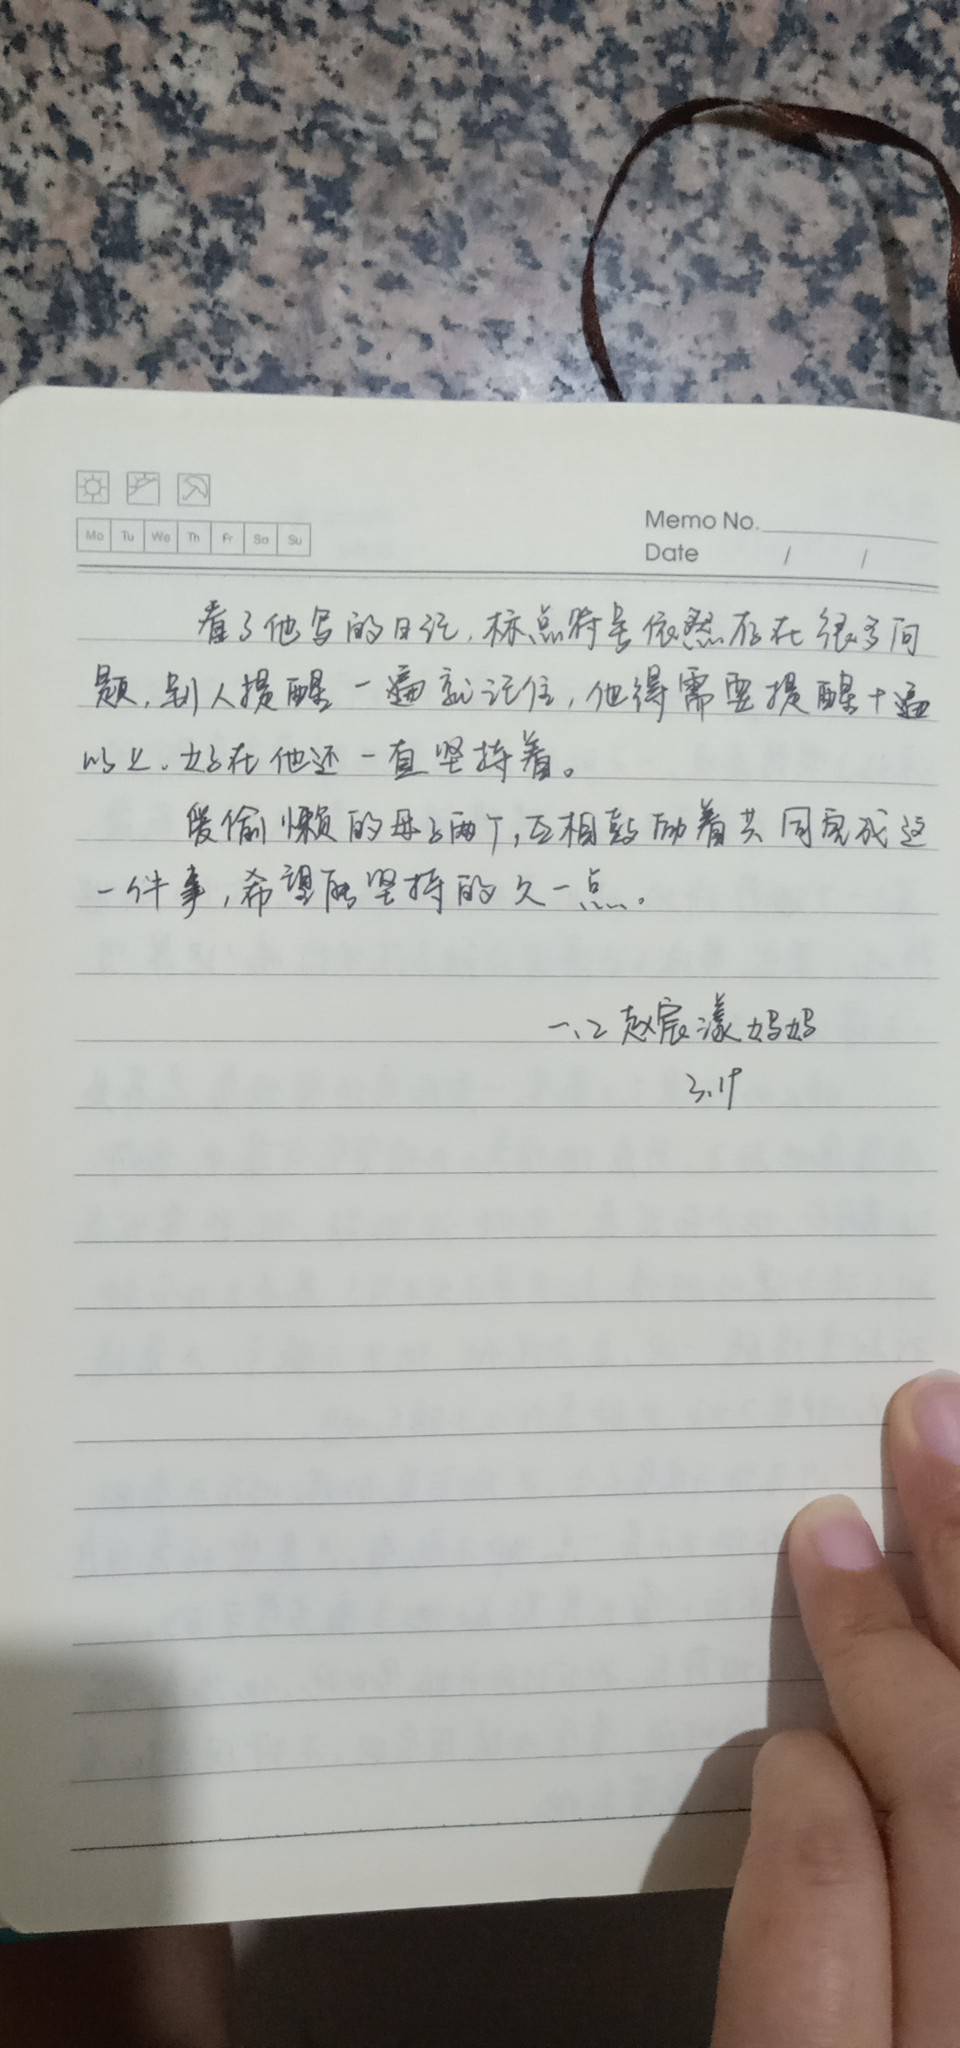 Mo Tu We Th Fr Sa Su
Memo No.
Date / /
看了他写的日记,标点符号依然存在很多问
题,别人提醒一遍就记住,他得需要提醒十遍
以上.好在他还一直坚持着。
爱偷懒的母子两个,互相鼓励着共同完成这
一件事,希望能坚持的久一点。
一.2赵宸漾妈妈
3.19